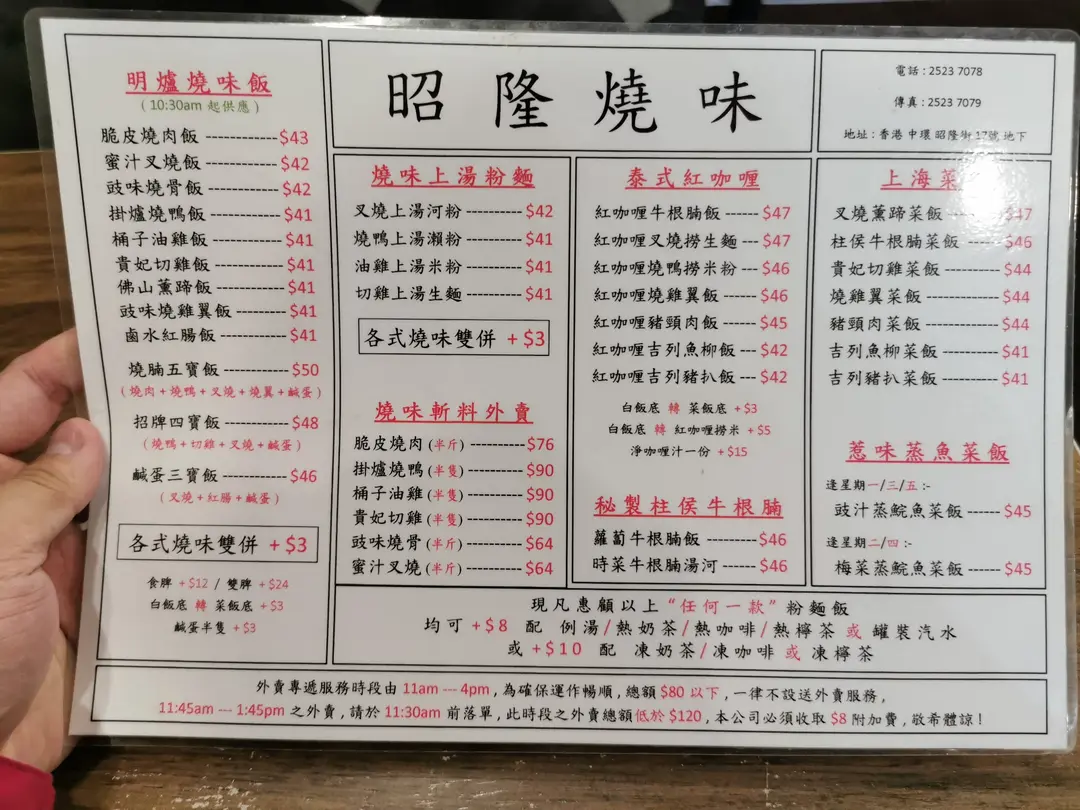 昭隆燒味
電話 : 2523 7078
傳真 : 2523 7079
地址 : 香港 中環 昭隆街 17號 地下
明爐燒味飯
( 10:30am 起供應 )
脆皮燒肉飯 ------------$43
蜜汁叉燒飯 ------------$42
豉味燒骨飯 ------------$42
掛爐燒鴨飯 ------------$41
桶子油雞飯 ------------$41
貴妃切雞飯 ------------$41
佛山薰蹄飯 ------------$41
豉味燒雞翼飯 ----------$41
鹵水紅腸飯 ------------$41
燒腩五寶飯 ------------$50
( 燒肉 + 燒鴨 + 叉燒 + 燒翼 + 鹹蛋 )
招牌四寶飯 ------------$48
( 燒鴨 + 切雞 + 叉燒 + 鹹蛋 )
鹹蛋三寶飯 ------------$46
( 叉燒 + 紅腸 + 鹹蛋 )
各式燒味雙併 + $3
食脾 + $12 / 雙脾 + $24
白飯底 轉 菜飯底 + $3
鹹蛋半隻 + $3
燒味上湯粉麵
叉燒上湯河粉 ---------- $42
燒鴨上湯瀨粉 ---------- $41
油雞上湯米粉 ---------- $41
切雞上湯生麵 ---------- $41
各式燒味雙併 + $3
燒味斬料外賣
脆皮燒肉 (半斤) ----------$76
掛爐燒鴨 (半隻) ----------$90
桶子油雞 (半隻) ----------$90
貴妃切雞 (半隻) ----------$90
豉味燒骨 (半斤) ----------$64
蜜汁叉燒 (半斤) ----------$64
泰式紅咖喱
紅咖喱牛根腩飯 ------ $47
紅咖喱叉燒撈生麵 --- $47
紅咖喱燒鴨撈米粉 --- $46
紅咖喱燒雞翼飯 ------ $46
紅咖喱豬頸肉飯 ------ $45
紅咖喱吉列魚柳飯 --- $42
紅咖喱吉列豬扒飯 --- $42
白飯底 轉 菜飯底 + $3
白飯底 轉 紅咖喱撈米 + $5
淨咖喱汁一份 + $15
秘製柱侯牛根腩
蘿蔔牛根腩飯 ---------$46
時菜牛根腩湯河 ------$46
上海菜
叉燒薰蹄菜飯 --------- $47
柱侯牛根腩菜飯 ------ $46
貴妃切雞菜飯 --------- $44
燒雞翼菜飯 ------------ $44
豬頸肉菜飯 ------------ $44
吉列魚柳菜飯 --------- $41
吉列豬扒菜飯 --------- $41
惹味蒸魚菜飯
逢星期一/三/五 :-
豉汁蒸鯇魚菜飯 ------ $45
逢星期二/四 :-
梅菜蒸鯇魚菜飯 ------ $45
現凡惠顧以上 “任何一款” 粉麵飯
均可 + $8 配 例湯/熱奶茶/熱咖啡/熱檸茶 或 罐裝汽水
或 + $10 配 凍奶茶/凍咖啡 或 凍檸茶
外賣專遞服務時段由 11am --- 4pm , 為確保運作暢順 , 總額 $80 以下 , 一律不設送外賣服務 ,
11:45am --- 1:45pm 之外賣 , 請於 11:30am 前落單 , 此時段之外賣總額低於 $120 , 本公司必須收取 $8 附加費 , 敬希體諒 !